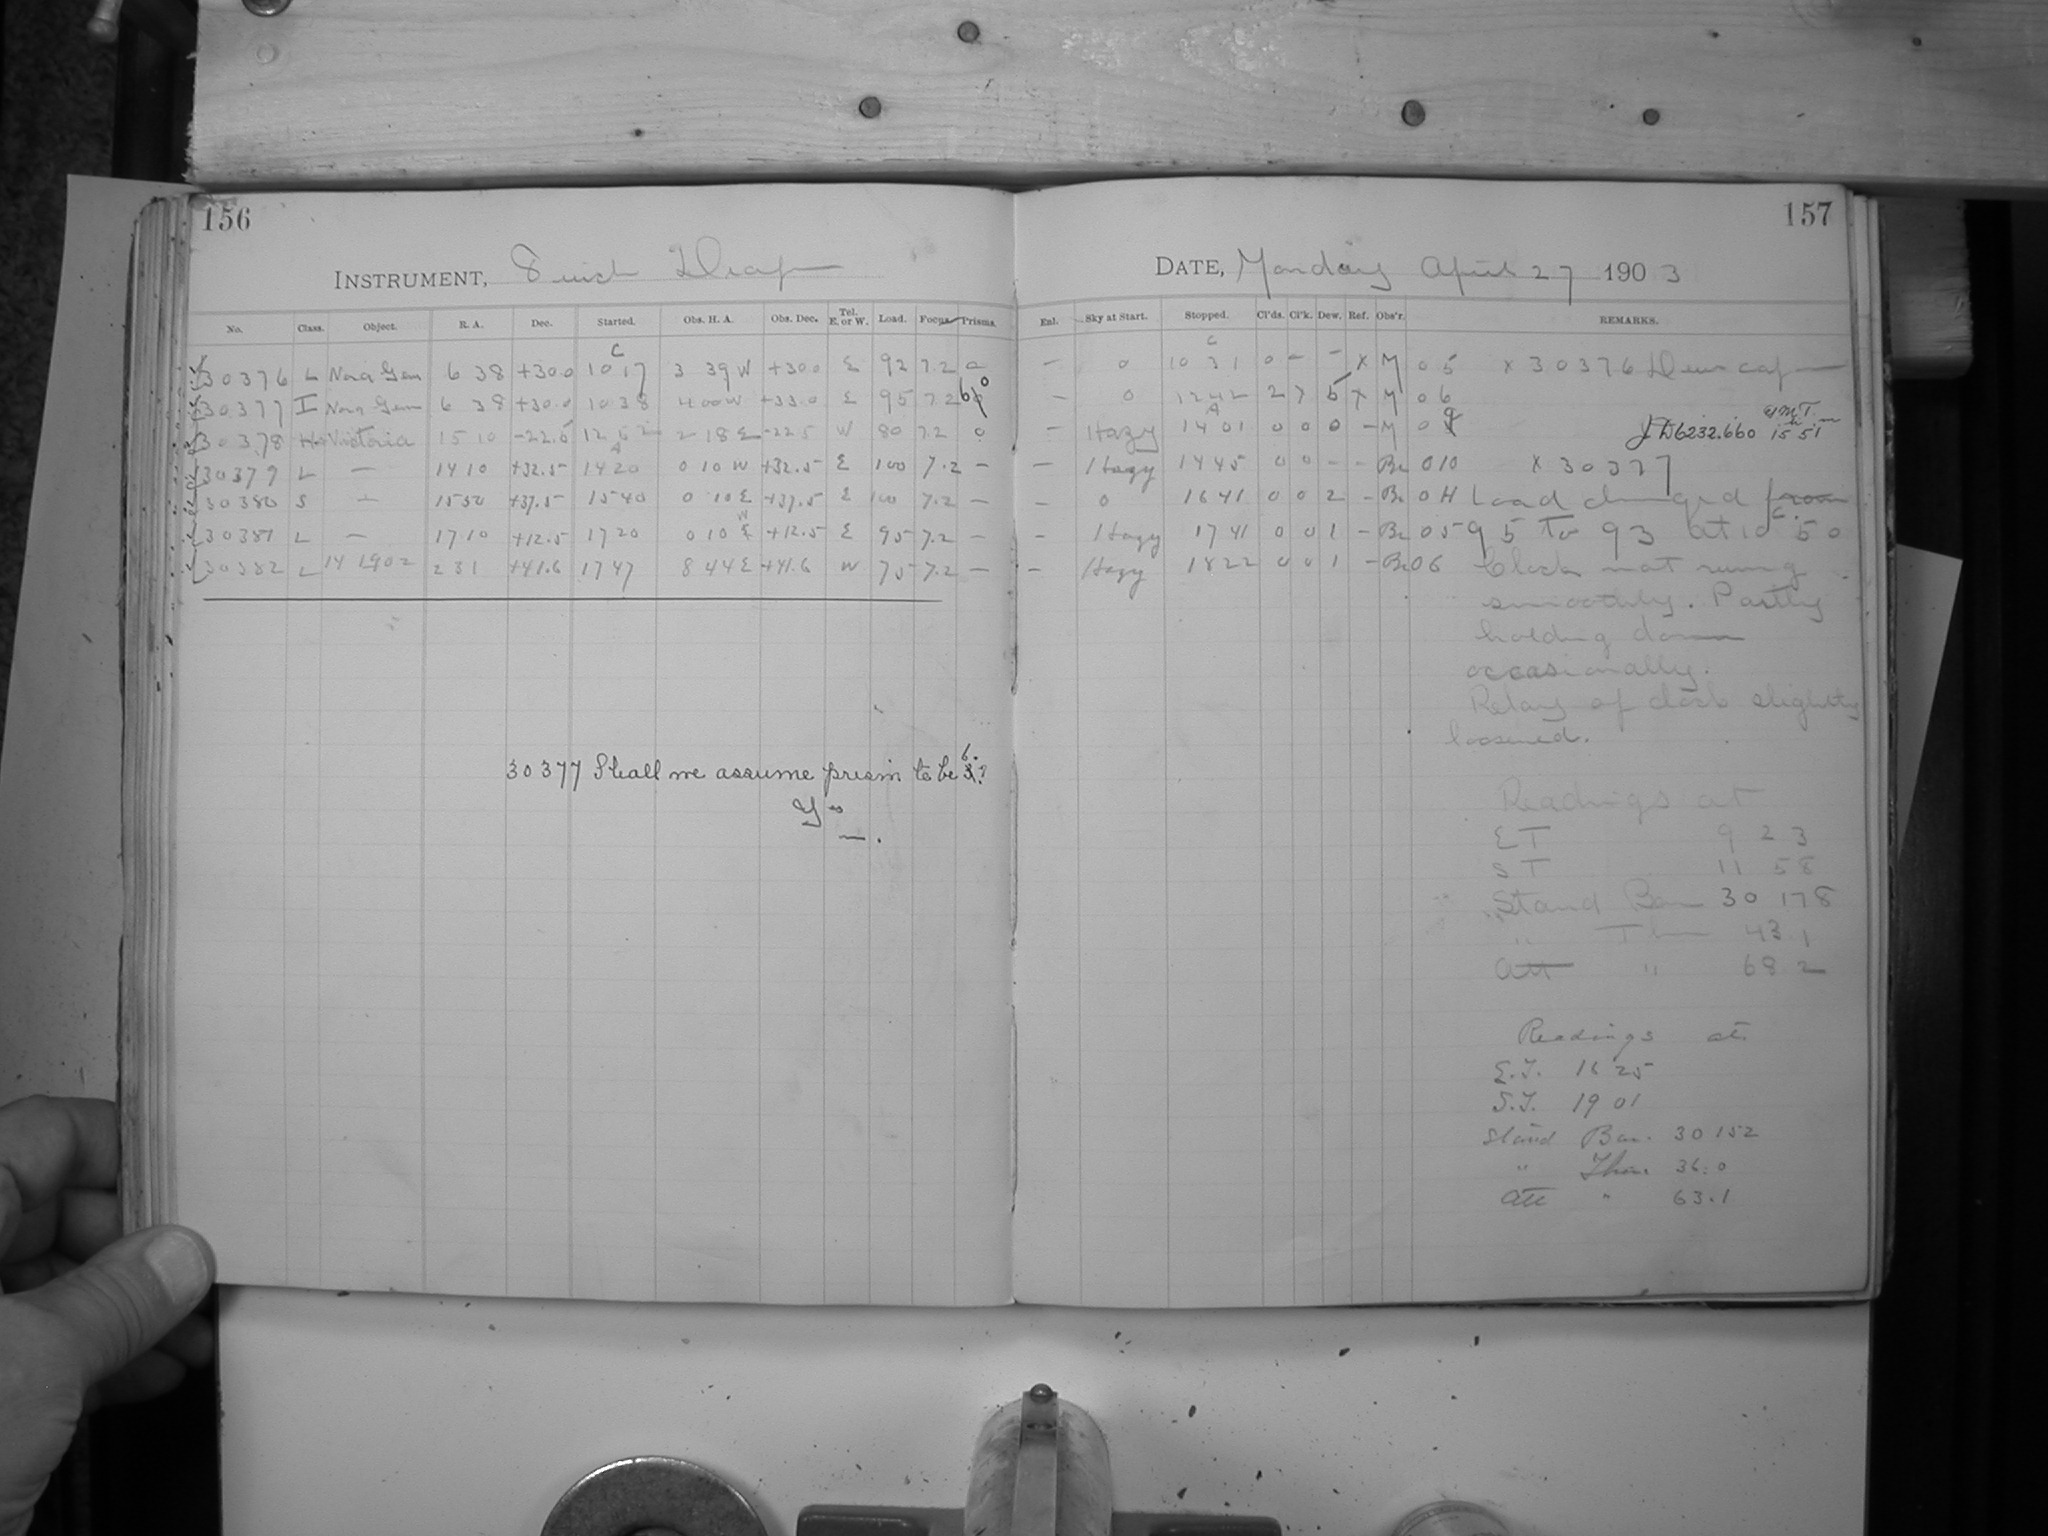 156
INSTRUMENT, 8 inch Draper
No. Class. Object. R. A. Dec. Started. Obs. H. A. Obs. Dec. Tel. E. or W. Load. Focus. Prisms.
C
30376 L Nova Gem 6 38 +30.0 10 17 3 39 W +30.0 E 92 7.2 0
30377 I Nova Gem 6 38 +30.0 10 38 4 00 W +33.0 E 95 7.2 6 0
30378 Victoria 15 10 -22.5 2 18 E -22.5 W 80 7.2 0
A
30379 L — 14 10 +32.5 14 20 0 10 W +32.5 E 100 7.2 —
30380 S — 15 50 +37.5 15 40 0 10 E +37.5 E 100 7.2 —
W
30381 L — 17 10 +12.5 17 20 0 10 E +12.5 E 95 7.2 —
30382 L 14 1902 2 31 +41.6 17 47 8 44 E +41.6 W 75 7.2 —
6.
30377 Shall we assume prism to be 3.?
Yes
—.
157
DATE, Monday April 27 1903
Enl. Sky at Start. Stopped. Cl'ds. Cl'k. Dew. Ref. Obs'r. REMARKS.
C
— 0 10 31 0 – – x M 05 x 30376 Dew cap
— 0 12 42 2 7 5 x M 06
A
— Hazy 14 01 0 0 0 – M 09 JD6232.660 GMT. 15h 51m
— Hazy 14 45 0 0 – – Be 010 x 30377
— 0 16 41 0 0 2 – Be 0H Load changed from
— Hazy 17 41 0 0 1 – Be 05 95 to 93 at 10 50
— Hazy 18 22 0 0 1 – Be 06 Clock not runing
smoothly. Partly
holding down
occasionally.
Relay of clock slightly
loosened.
Readings at
ET 9 23
ST 11 58
Stand Bar 30 178
" Ther 43.1
Att " 68.2
Readings at
E.T. 16 25
S.T. 19 01
Stand Bar. 30 152
" Ther. 36.0
Att " 63.1